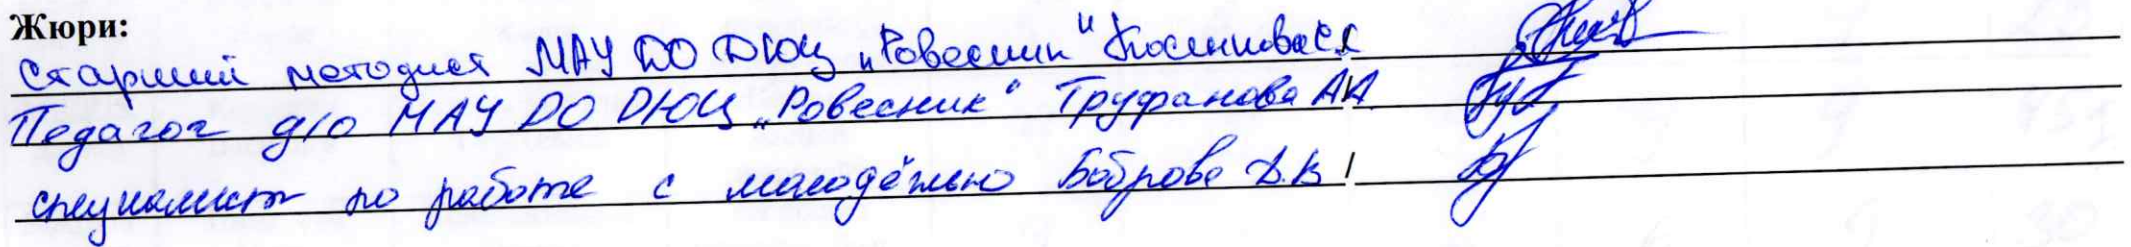 Жюри:
Старший методист МАУ ДО ДЮЦ „Ровесник"
Педагог д/о МАУ ДО ДЮЦ „Ровесник" Труфанова А.А.
специалист по работе с молодёжью Боброва Д.В /